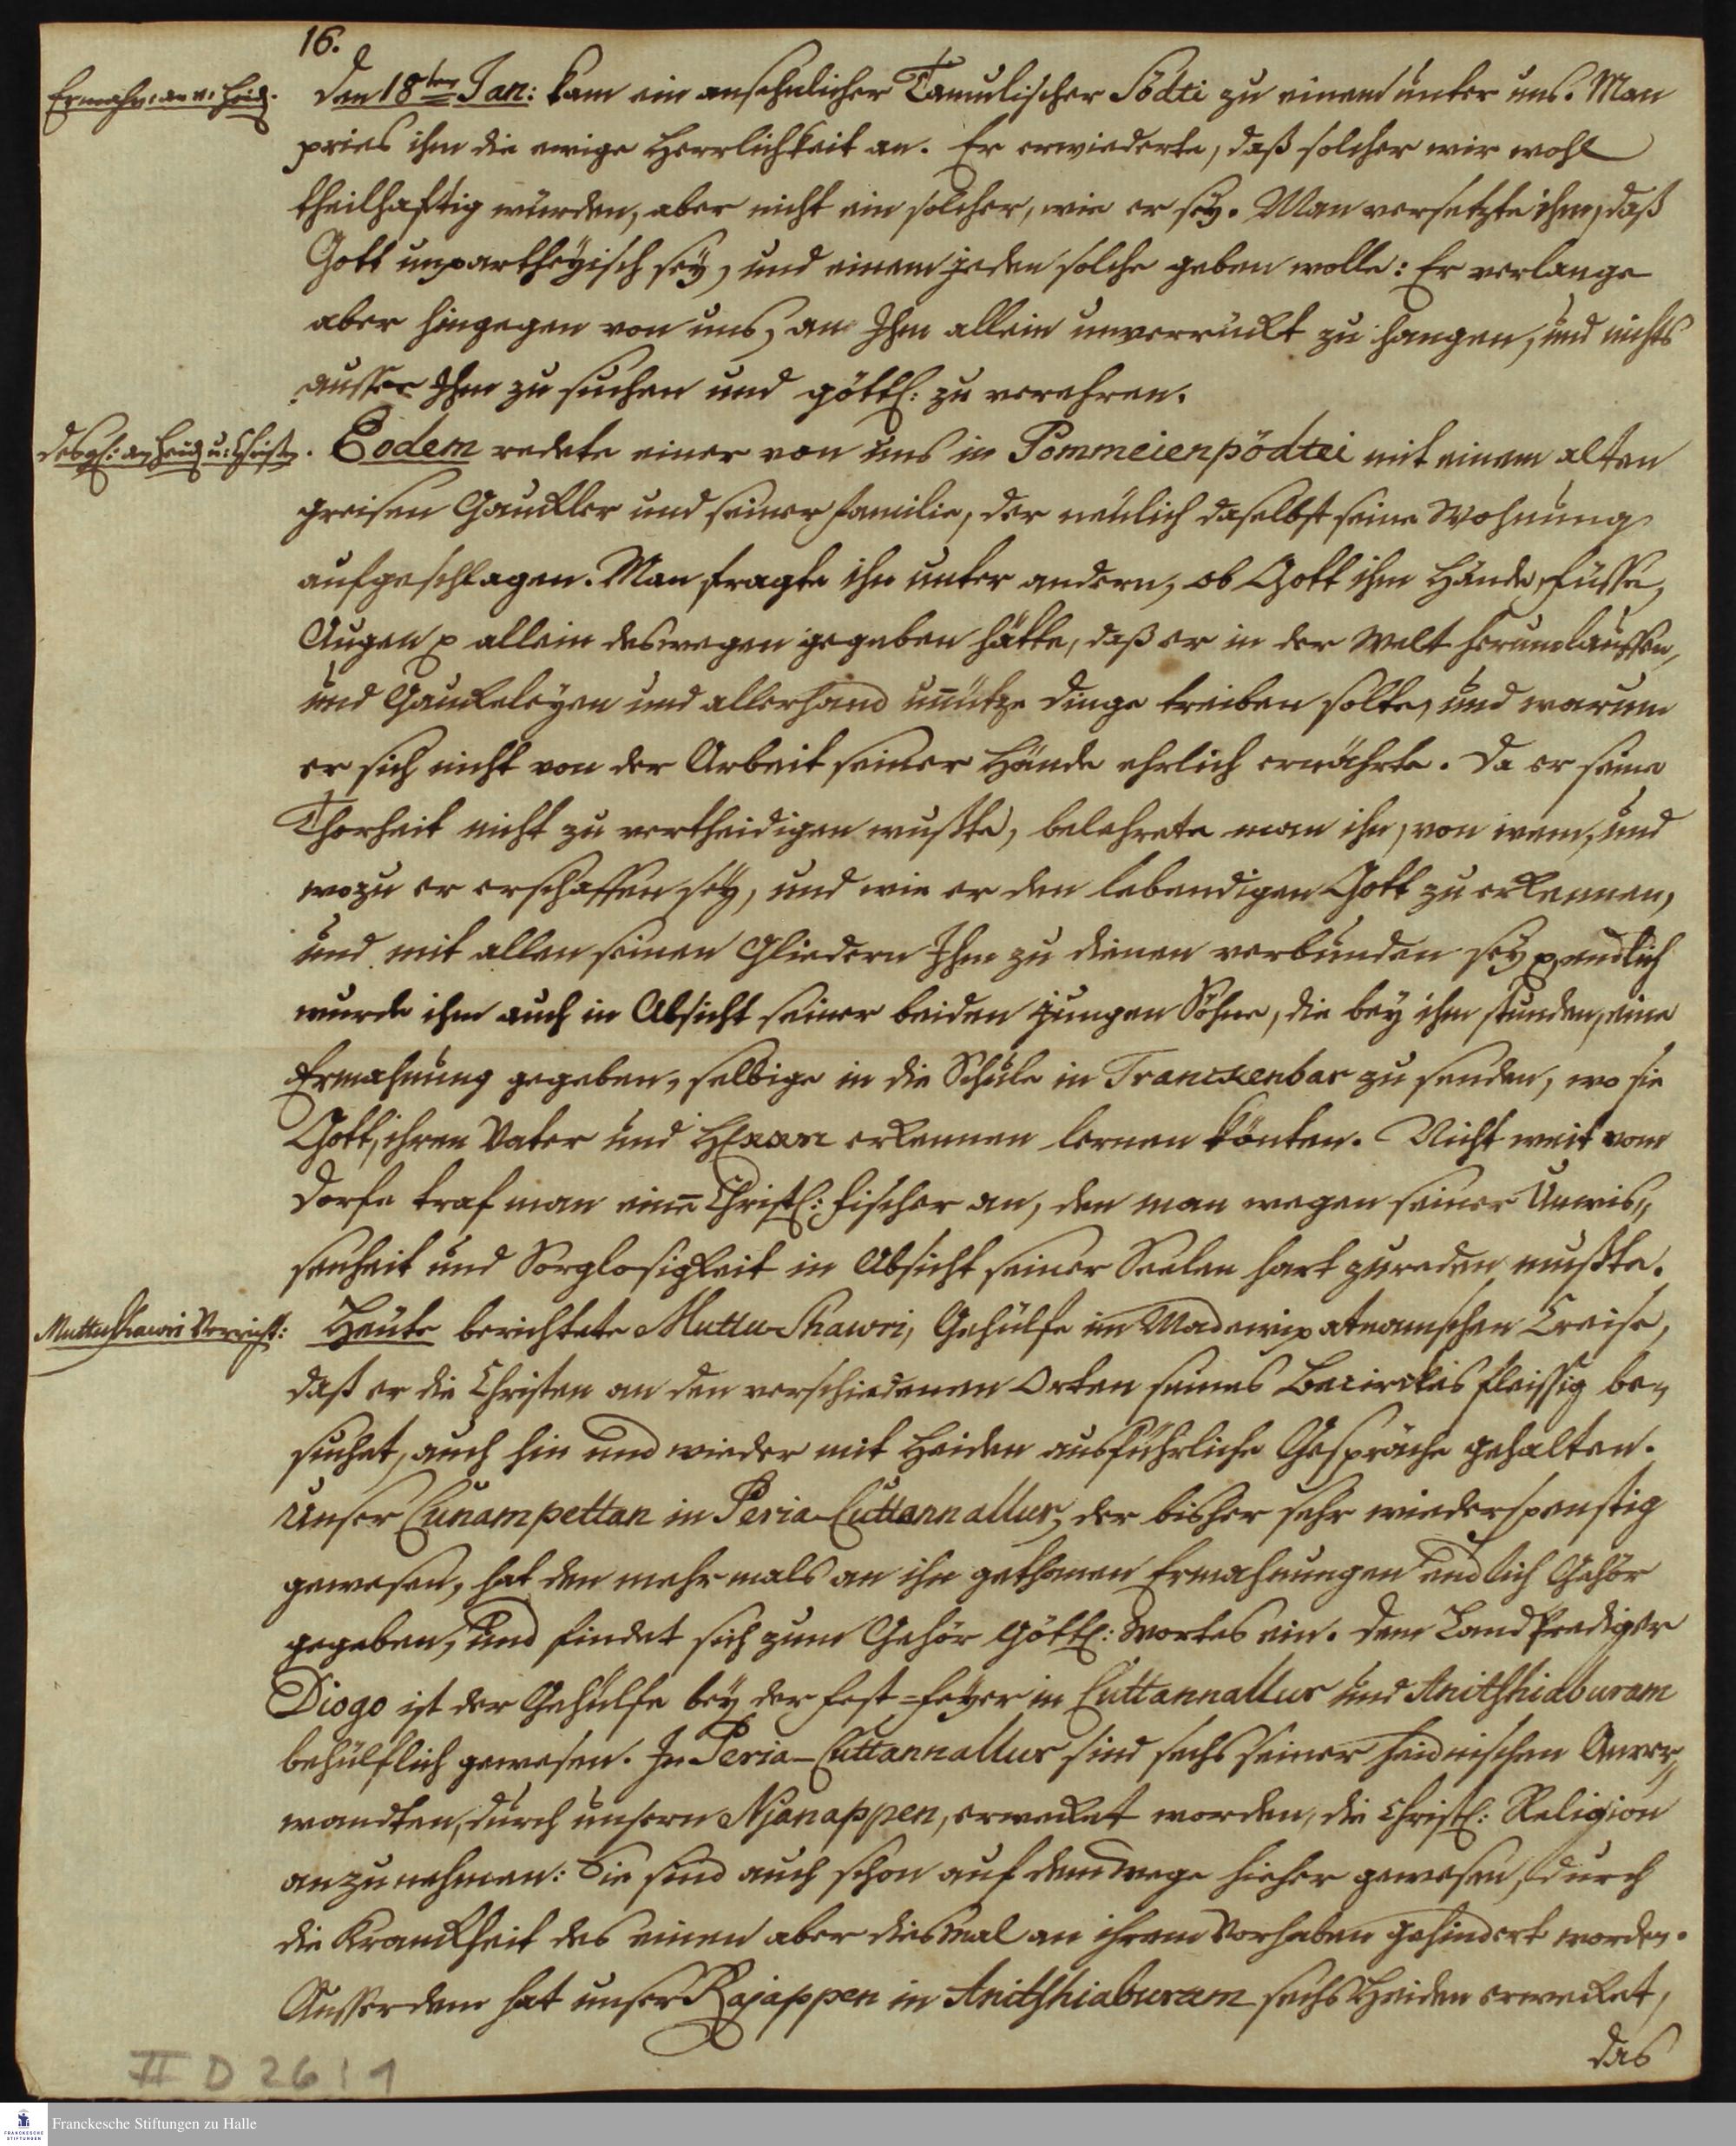 16.
Ermahn: an e. Heid.
Den 18ten Jan: kam ein ansehnlicher Tamulischer Södti zu einem unter uns. Man
pries ihm die ewige Herrlichkeit an. Er erwiederte, daß solcher wir wohl
theilhafftig würden, aber nicht ein solcher, wie er sey. Man versetzte ihm, daß
Gott unpartheyisch sey, und einem jeden solche geben wolle: Er verlange
aber hingegen von uns, an Ihm allein unverrückt zu hangen, und nichts
ausser Ihm zu suchen und göttl: zu verehren.
desgl: an Heid. u: Christ.
Eodem redete einer von uns in Pommeienpödtei mit einem alten
greisen Gauckler und seiner Familie, der neulich daselbst seine Wohnung
aufgeschlagen. Man fragte ihn unter andern, ob Gott ihm Hände, Füsse,
Augen p allein deswegen gegeben hätte, daß er in der Welt herumlauffen,
und Gauckeleyen und allerhand unütze Dinge treiben solte, und warum
er sich nicht von der Arbeit seiner Hände ehrlich ernährte. Da er seine
Thorheit nicht zu vertheidigen wußte, belehrete man ihn, von wem, und
wozu er erschaffen sey, und wie er den lebendigen Gott zu erkennen,
und mit allen seinen Gliedern Ihm zu dienen verbunden sey p. endlich
wurde ihm auch in Absicht seiner beiden jungen Söhne, die bey ihm stunden, eine
Ermahnung gegeben, selbige in die Schule in Tranckenbar zu senden, wo sie
Gott, ihren Vater und HErrn erkennen lernen könten. Nicht weit vom
Dorfe traf man einen Christl: Fischer an, den man wegen seiner Unwis„
senheit und Sorglosigkeit in Absicht seiner Seelen hart zureden mußte.
Muttu Shawri Verricht:
Heute berichtete Muttu Shawri, Gehülfe im Madewipatnamschen Creise,
daß er die Christen an den verschiedenen Orten seines Bezirckes fleissig be„
suchet, auch hin und wieder mit Heiden ausführliche Gespräche gehalten.
Unser Cunampettan in Peria-Cuttannallur, der bisher sehr wiederspenstig
gewesen, hat den mehrmals an ihn gethanen Ermahnungen endlich Gehör
gegeben, und findet sich zum Gehör Göttl: Wortes ein. Dem LandPrediger
Diogo ist der Gehülfe bey der Fest=Feyer in Cuttannallur und Anitshiaburam
behülflich gewesen. In Peria-Cuttannallur sind sechs seiner heidnischen Anver„
wandten, durch unsern Njanappen, erwecket worden, die Christl: Religion
anzunehmen: Sie sind auch schon auf dem Wege hieher gewesen, durch
die Kranckheit des einen aber diesmal an ihrem Vorhaben gehindert worden.
Ausserdem hat unser Rajappen in Anitshiaburam sechs Heiden erwecket,
das
II D 26 : 1
Franckesche Stiftungen zu Halle